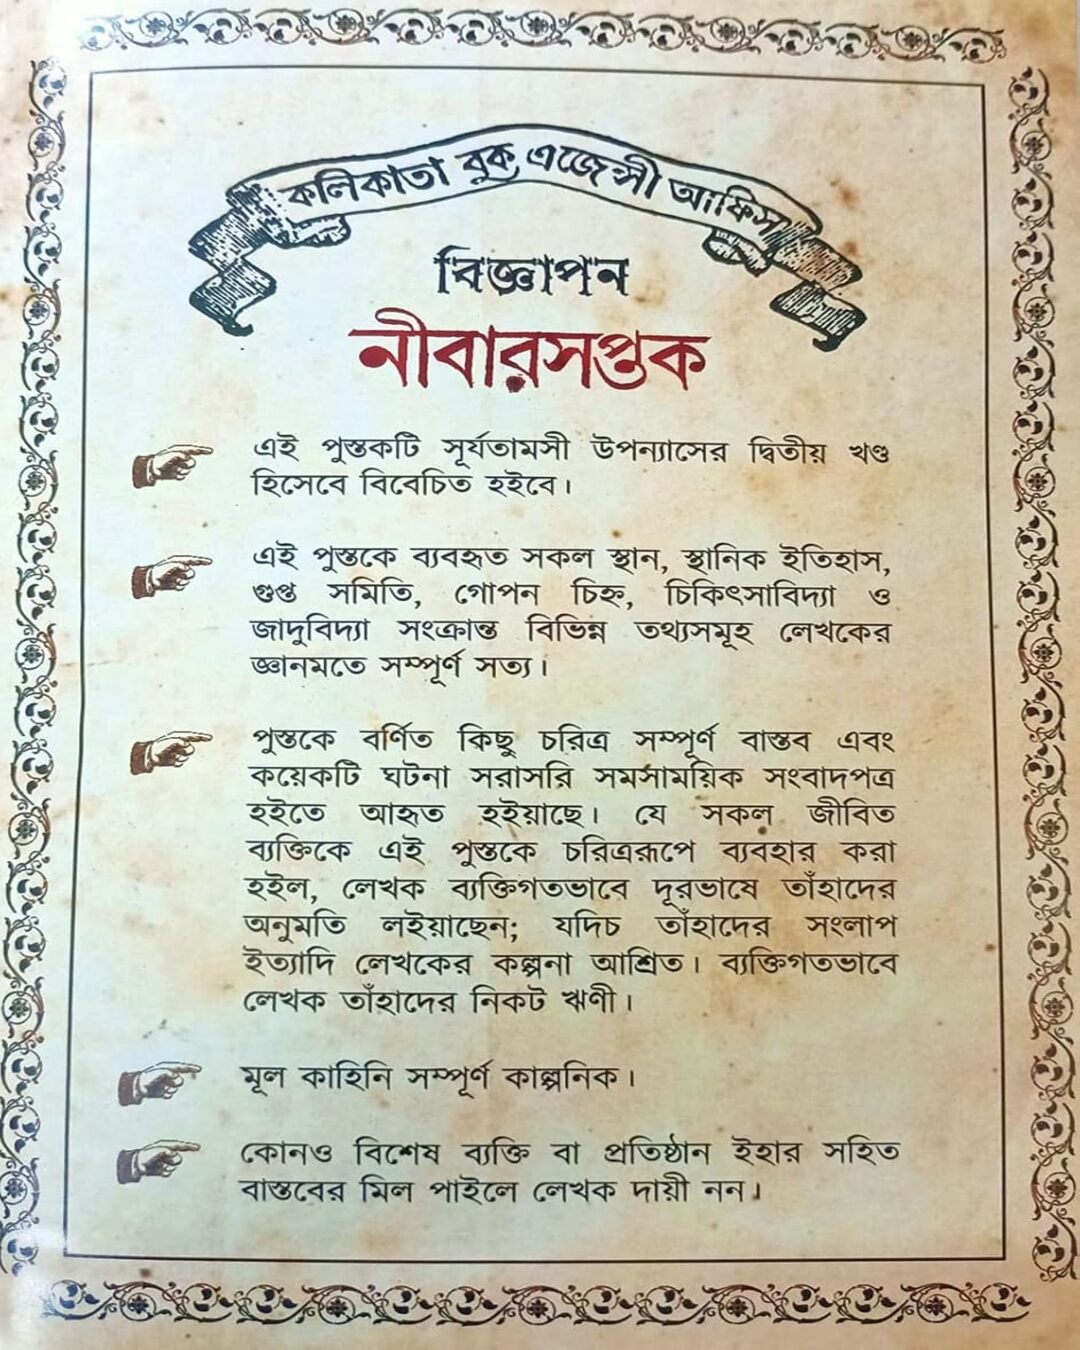 কলিকাতা বুক এজেন্সী আফিস
বিজ্ঞাপন
নীবারসপ্তক
এই পুস্তকটি সূর্যতামসী উপন্যাসের দ্বিতীয় খণ্ড
হিসেবে বিবেচিত হইবে।
এই পুস্তকে ব্যবহৃত সকল স্থান, স্থানিক ইতিহাস,
গুপ্ত সমিতি, গোপন চিহ্ন, চিকিৎসাবিদ্যা ও
জাদুবিদ্যা সংক্রান্ত বিভিন্ন তথ্যসমূহ লেখকের
জ্ঞানমতে সম্পূর্ণ সত্য।
পুস্তকে বর্ণিত কিছু চরিত্র সম্পূর্ণ বাস্তব এবং
কয়েকটি ঘটনা সরাসরি সমসাময়িক সংবাদপত্র
হইতে আহৃত হইয়াছে। যে সকল জীবিত
ব্যক্তিকে এই পুস্তকে চরিত্ররূপে ব্যবহার করা
হইল, লেখক ব্যক্তিগতভাবে দূরভাষে তাঁহাদের
অনুমতি লইয়াছেন; যদিচ তাঁহাদের সংলাপ
ইত্যাদি লেখকের কল্পনা আশ্রিত। ব্যক্তিগতভাবে
লেখক তাঁহাদের নিকট ঋণী।
মূল কাহিনি সম্পূর্ণ কাল্পনিক।
কোনও বিশেষ ব্যক্তি বা প্রতিষ্ঠান ইহার সহিত
বাস্তবের মিল পাইলে লেখক দায়ী নন।